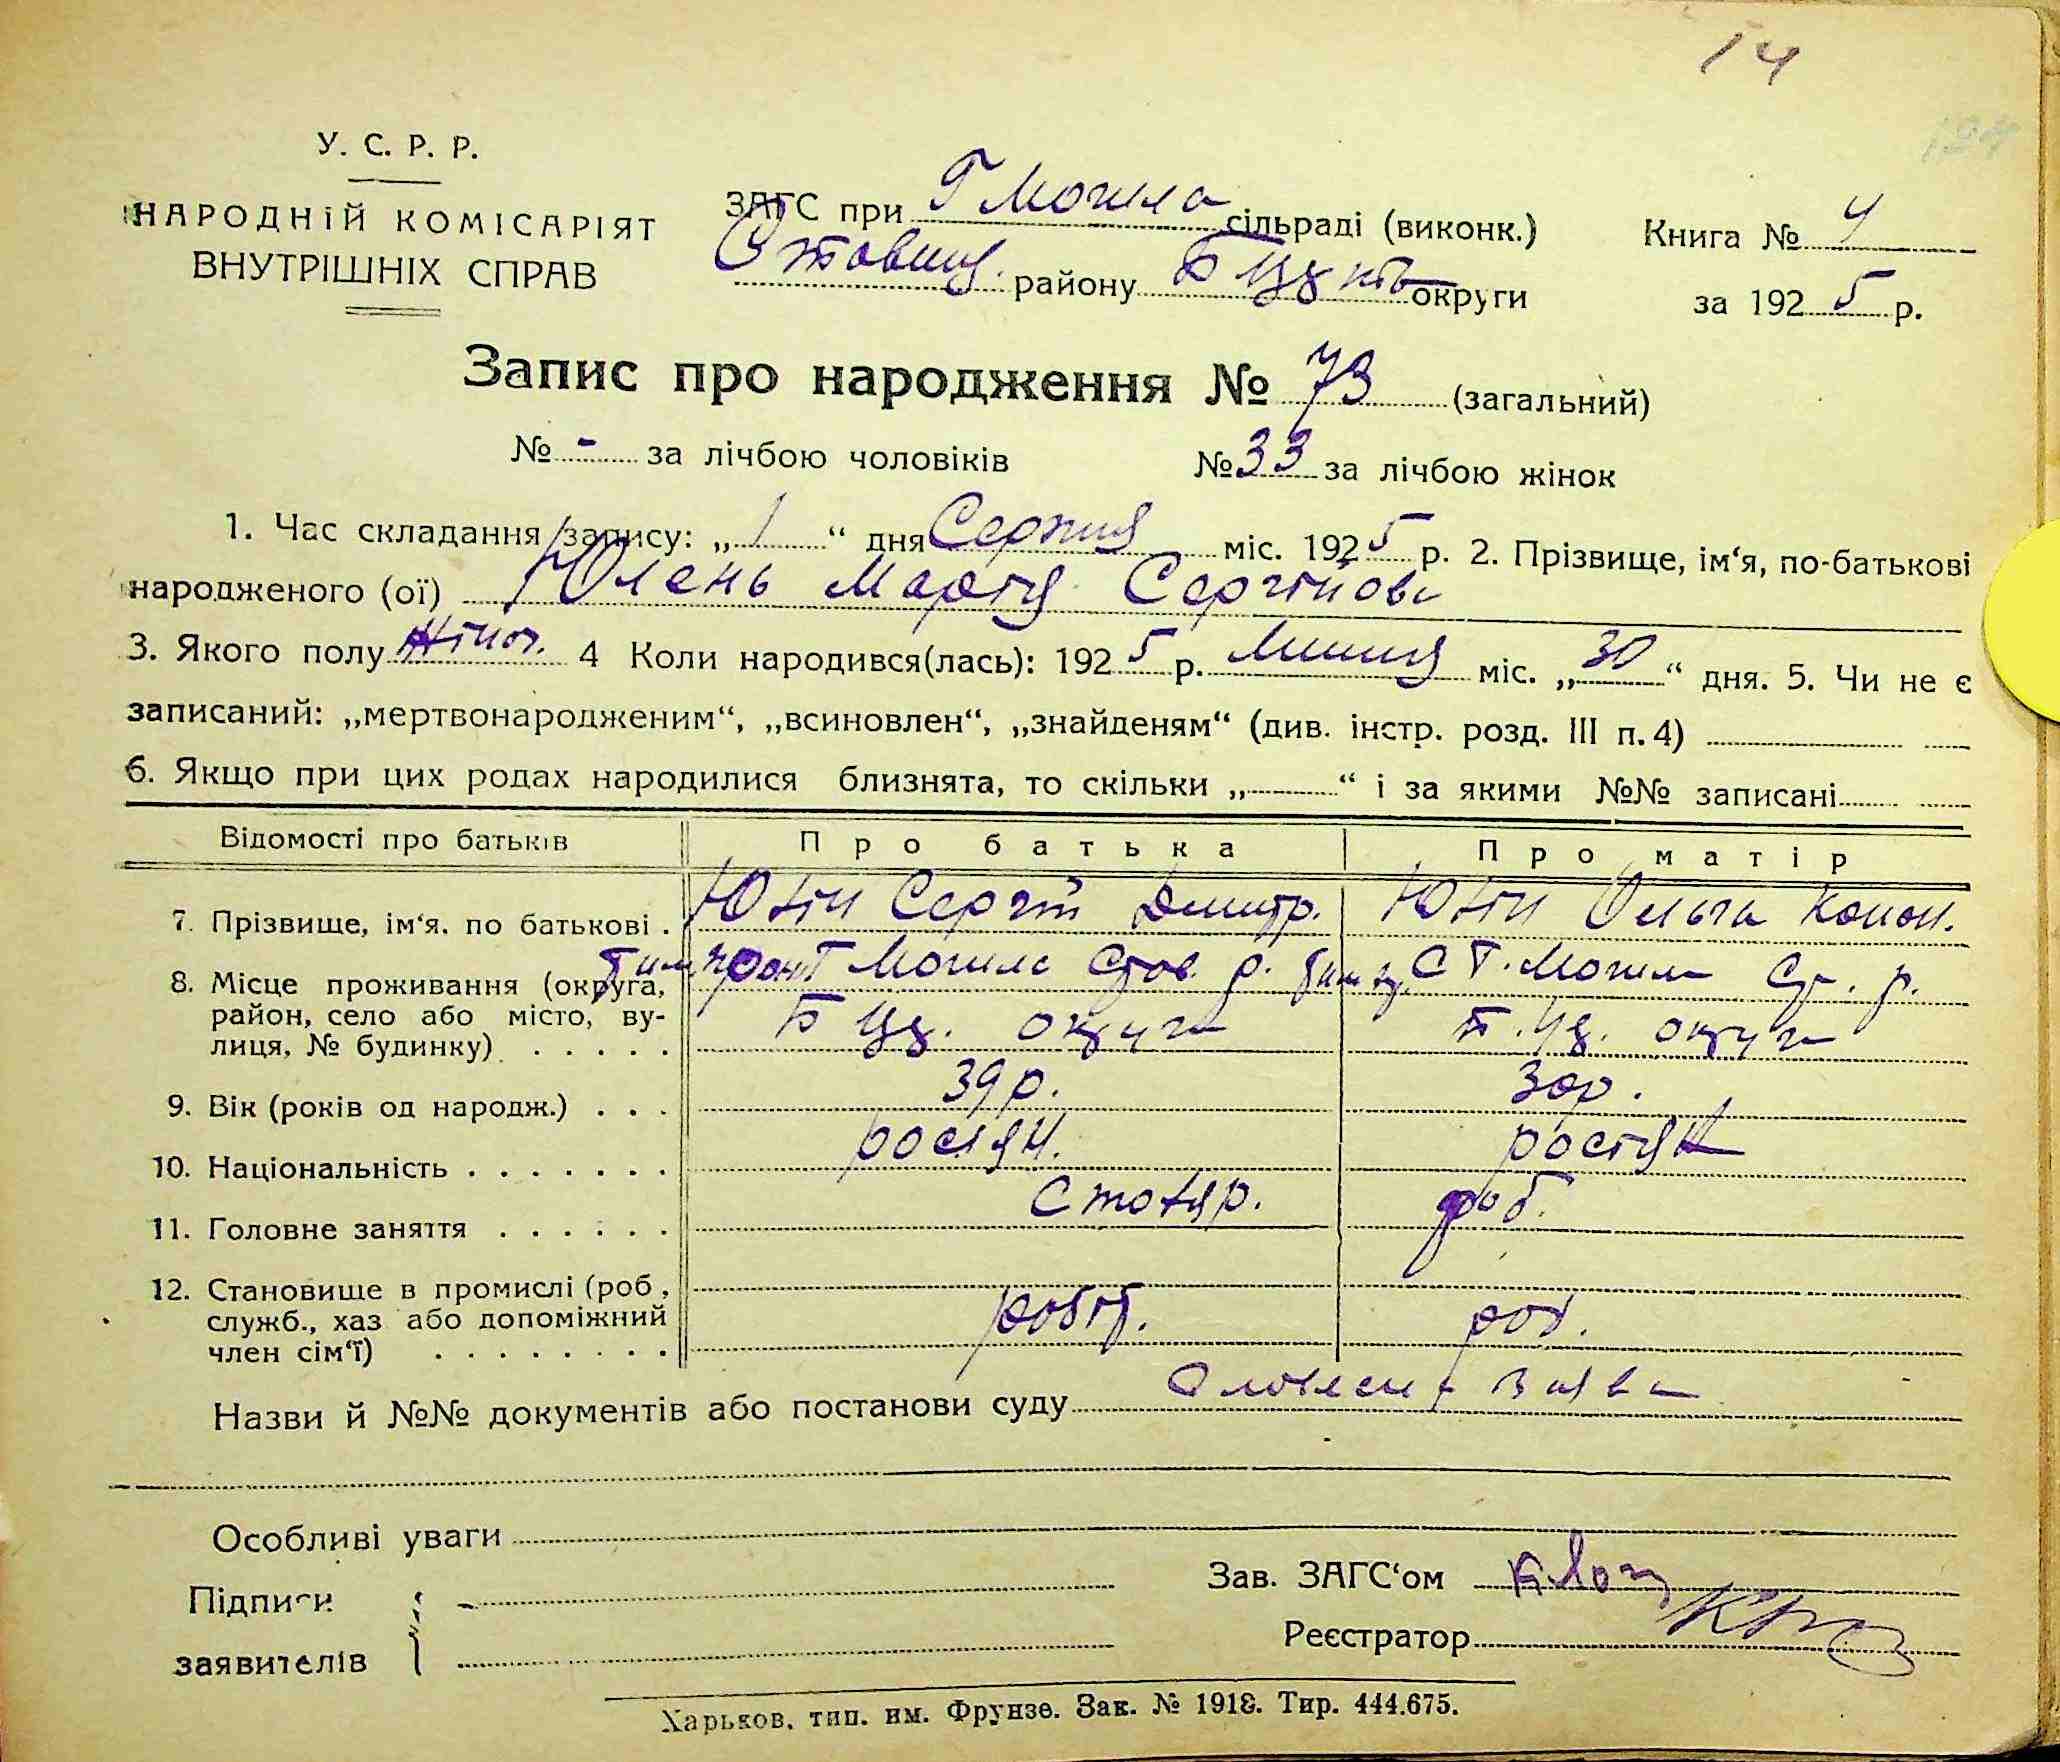 14
У. С. Р. Р.
НАРОДНІЙ КОМІСАРІЯТ
ВНУТРІШНІХ СПРАВ
ЗАГС при Г Могила сільраді (виконк.)
Ставищ. району Б Церків округи
Книга № 4
за 1925 р.
Запис про народження № 73 (загальний)
№ - за лічбою чоловіків № 33 за лічбою жінок
1. Час складання запису: „ 1 “ дня Серпня міс. 1925 р. 2. Прізвище, ім‘я, по-батькові
народженого (ої) Марія Сергійовн
3. Якого полу жіноч. 4 Коли народився(лась): 1925 р. Липня міс. „ 30 “ дня. 5. Чи не є
записаний: „мертвонародженим“, „всиновлен“, „знайденям“ (див. інстр. розд. III п. 4)
6. Якщо при цих родах народилися близнята, то скільки „ “ і за якими №№ записані
Відомості про батьків Про батька Про матір
7. Прізвище, ім‘я. по батькові . Сергій Дмитр. Ольга Конон.
8. Місце проживання (округа, Могила Став. р. С Г. Могила Ст. р.
район, село або місто, ву- Б Цер. округи Б. Цер. округи
лиця, № будинку) . . . . .
9. Вік (років од народж.) . . . 39 р. 30 р.
10. Національність . . . . . . . росіян. росіян
11. Головне заняття . . . . . . Столяр. роб.
12. Становище в промислі (роб.,
служб., хаз або допоміжний робіт.
член сім‘ї) . . . . . . . .
Назви й №№ документів або постанови суду Словесна заява
Особливі уваги
Підписи
заявителів
Зав. ЗАГС‘ом
Реєстратор
Харьков, тип. им. Фрунзе. Зак. № 1918. Тир. 444.675.